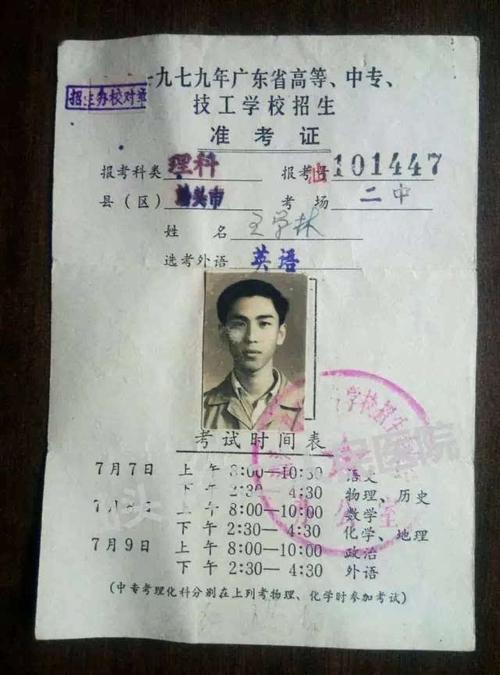 一九七九年广东省高等、中专、
技工学校招生
招生办校对章
准考证
报考科类 理科 报考号 汕101447
县(区) 汕头市 考场 二中
姓名 王学林
选考外语 英语
学校招生
考试时间表
7月7日 上午 8:00—10:30 语文
下午 2:30—4:30 物理、历史
7月8日 上午 8:00—10:00 数学
下午 2:30—4:30 化学、地理
7月9日 上午 8:00—10:00 政治
下午 2:30—4:30 外语
(中专考理化科分别在上列考物理、化学时参加考试)